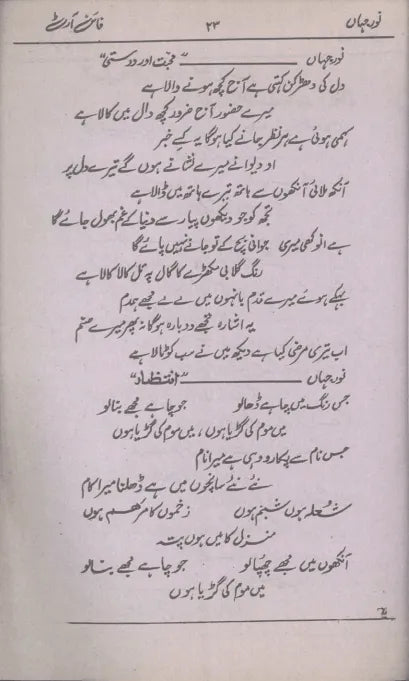 نور جہاں ۲۳ فائن آرٹ
نور جہاں ——— "محبت اور دوستی"
دل کی دھڑکن کہتی ہے آج کچھ ہونے والا ہے
میرے حضور آج ضرور کچھ دال میں کالا ہے
سہمی ہوئی ہے ہر نظر جانے کیا ہوگا یہ کسے خبر
او دیوانے میرے نشانے ہوں گے تیرے دل پر
آنکھ ملائی آنکھوں سے ہاتھ تیرے ہاتھ میں ڈالا ہے
تجھ کو جو دیکھوں پیار سے دنیا کے غم بھول جائے گا
ہے انوکھی میری جوانی بچ کے تو جانے نہیں پائے گا
رنگ گلابی مکھڑے کا گال پہ تل کالا کالا ہے
بہکے ہوئے میرے قدم بانہوں میں لے لے مجھے ہمدم
یہ اشارہ تجھے دوبارہ ہوگا نہ پھر میرے صنم
اب تیری مرضی کیا ہے دیکھ میں نے سب کہہ ڈالا ہے
نور جہاں ——— "انتظار"
جس رنگ میں چاہے ڈھالو جو چاہے مجھے بنا لو
میں موم کی گڑیا ہوں، میں موم کی گڑیا ہوں
جس نام سے پکارو وہی ہے میرا نام
نئے نئے سانچوں میں ہے ڈھلنا میرا کام
شعلہ ہوں شبنم ہوں زخموں کا مرہم ہوں
منزل کا میں ہوں پتہ
آنکھوں میں مجھے چھپا لو جو چاہے مجھے بنا لو
میں موم کی گڑیا ہوں